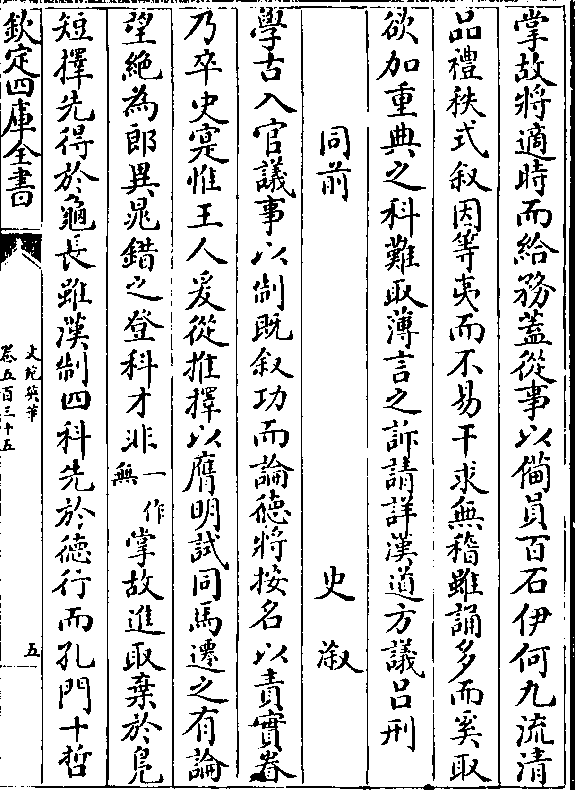 掌故將適時而給務蓋從事以備員百石伊何九流清
品禮秩式叙因等夷而不易干求無稽雖誦多而奚取
欲加重典之科難取薄言之訴請詳漢道方議吕刑
同前 史淑
學古入官議事以制既叙功而論德將按名以責實眷
乃卒史寔惟王人爰從推擇以膺明試同馬遷之有論
望絶為郎異晁錯之登科才非一作無掌故進取棄於凫
短擇先得於龜長雖漢制四科先於德行而孔門十哲
欽定四庫全書
文苑英華
卷五百三十五
五